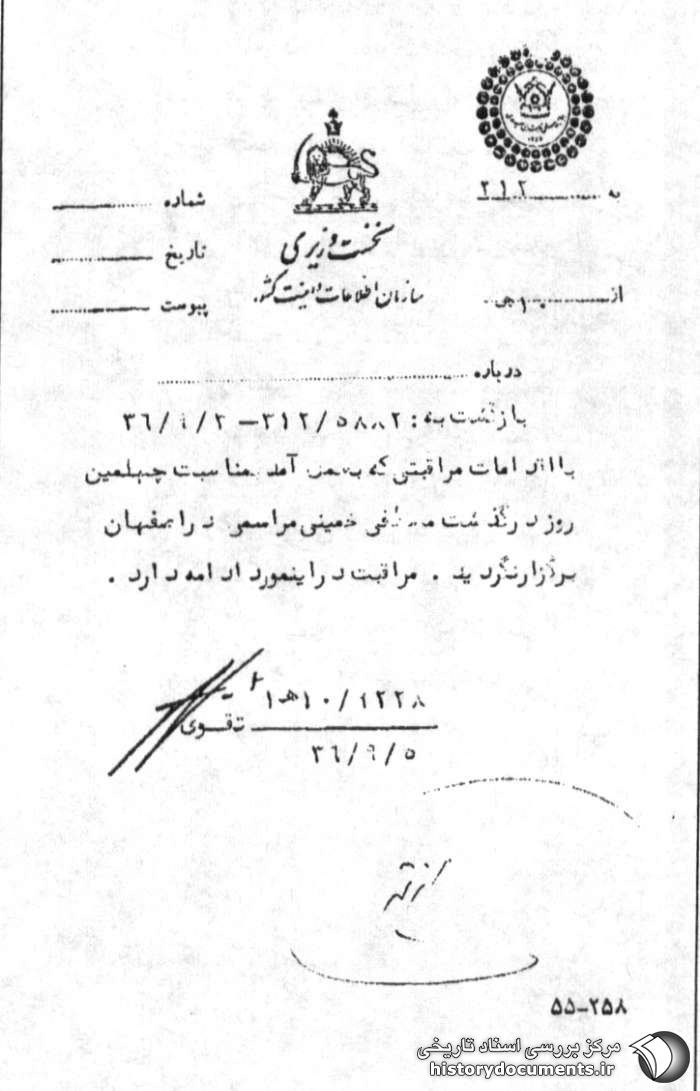 به ۳۱۲
شماره
نخست وزیری
تاریخ
سازمان اطلاعات و امنیت کشور
از ۱۰ هـ
پیوست
درباره
بازگشت به : ۳۱۲/۵۸۸۲ – ۳۶/۹/۲
با اقدامات مراقبتی که بعمل آمد بمناسبت چهلمین
روز درگذشت مصطفی خمینی مراسمی در اصفهان
برگزار نگردید . مراقبت در اینمورد ادامه دارد .
۱۰/۹۲۲۸ هـ ۱
تقوی
۳۶/۹/۵
۵۵-۲۵۸
مرکز بررسی اسناد تاریخی
historydocuments.ir